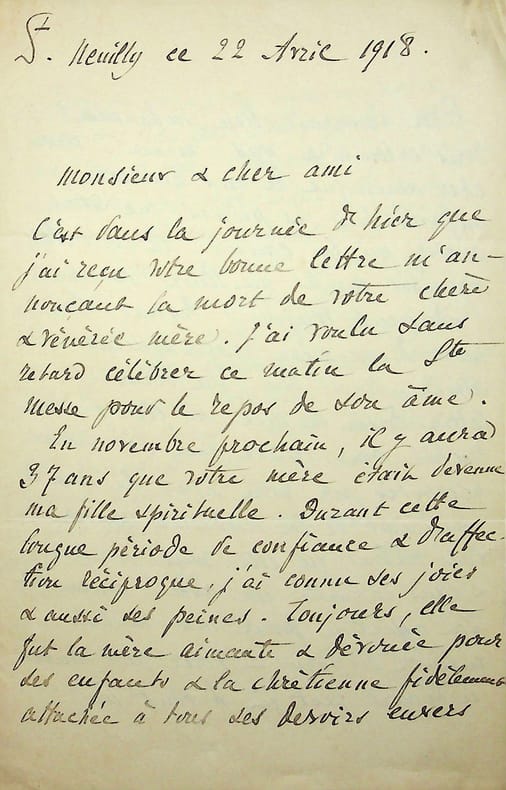 St. Neuilly ce 22 Avril 1918.
Monsieur & cher ami
C'est dans la journée d'hier que
j'ai reçu votre bonne lettre m'an-
nonçant la mort de votre chère
& vénérée mère. J'ai voulu sans
retard célébrer ce matin la Ste
Messe pour le repos de son âme.
En novembre prochain, il y aura
37 ans que votre mère était devenue
ma fille spirituelle. Durant cette
longue période de confiance & d'affec-
tion réciproque, j'ai connu ses joies
& aussi ses peines. Toujours, elle
fut la mère aimante & dévouée pour
ses enfants & la chrétienne fidèlement
attachée à tous ses devoirs envers